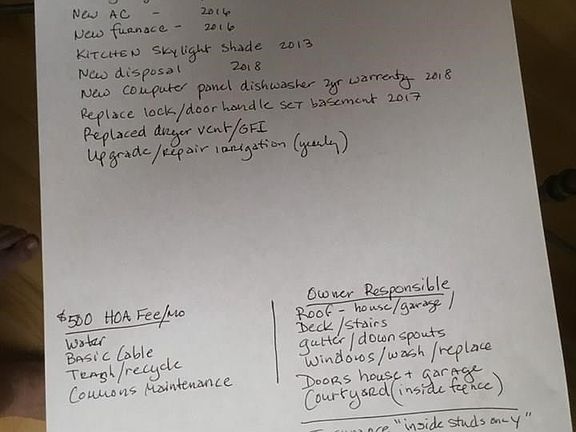 New AC - 2016
New furnace - 2016
KITCHEN Skylight Shade 2013
New disposal 2018
New computer panel dishwasher 2yr warrenty 2018
Replace lock/door handle set basement 2017
Replaced dryer vent/GFI
Upgrade/repair irrigation (yearly)
$500 HOA Fee/mo
Water
BASIC Cable
Trash/recycle
Commons maintenance
Owner Responsible
Roof - house/garage/
Deck/stairs
gutter/downspouts
Windows/wash/replace
Doors house + garage
Courtyard (inside fence)
"inside studs only"